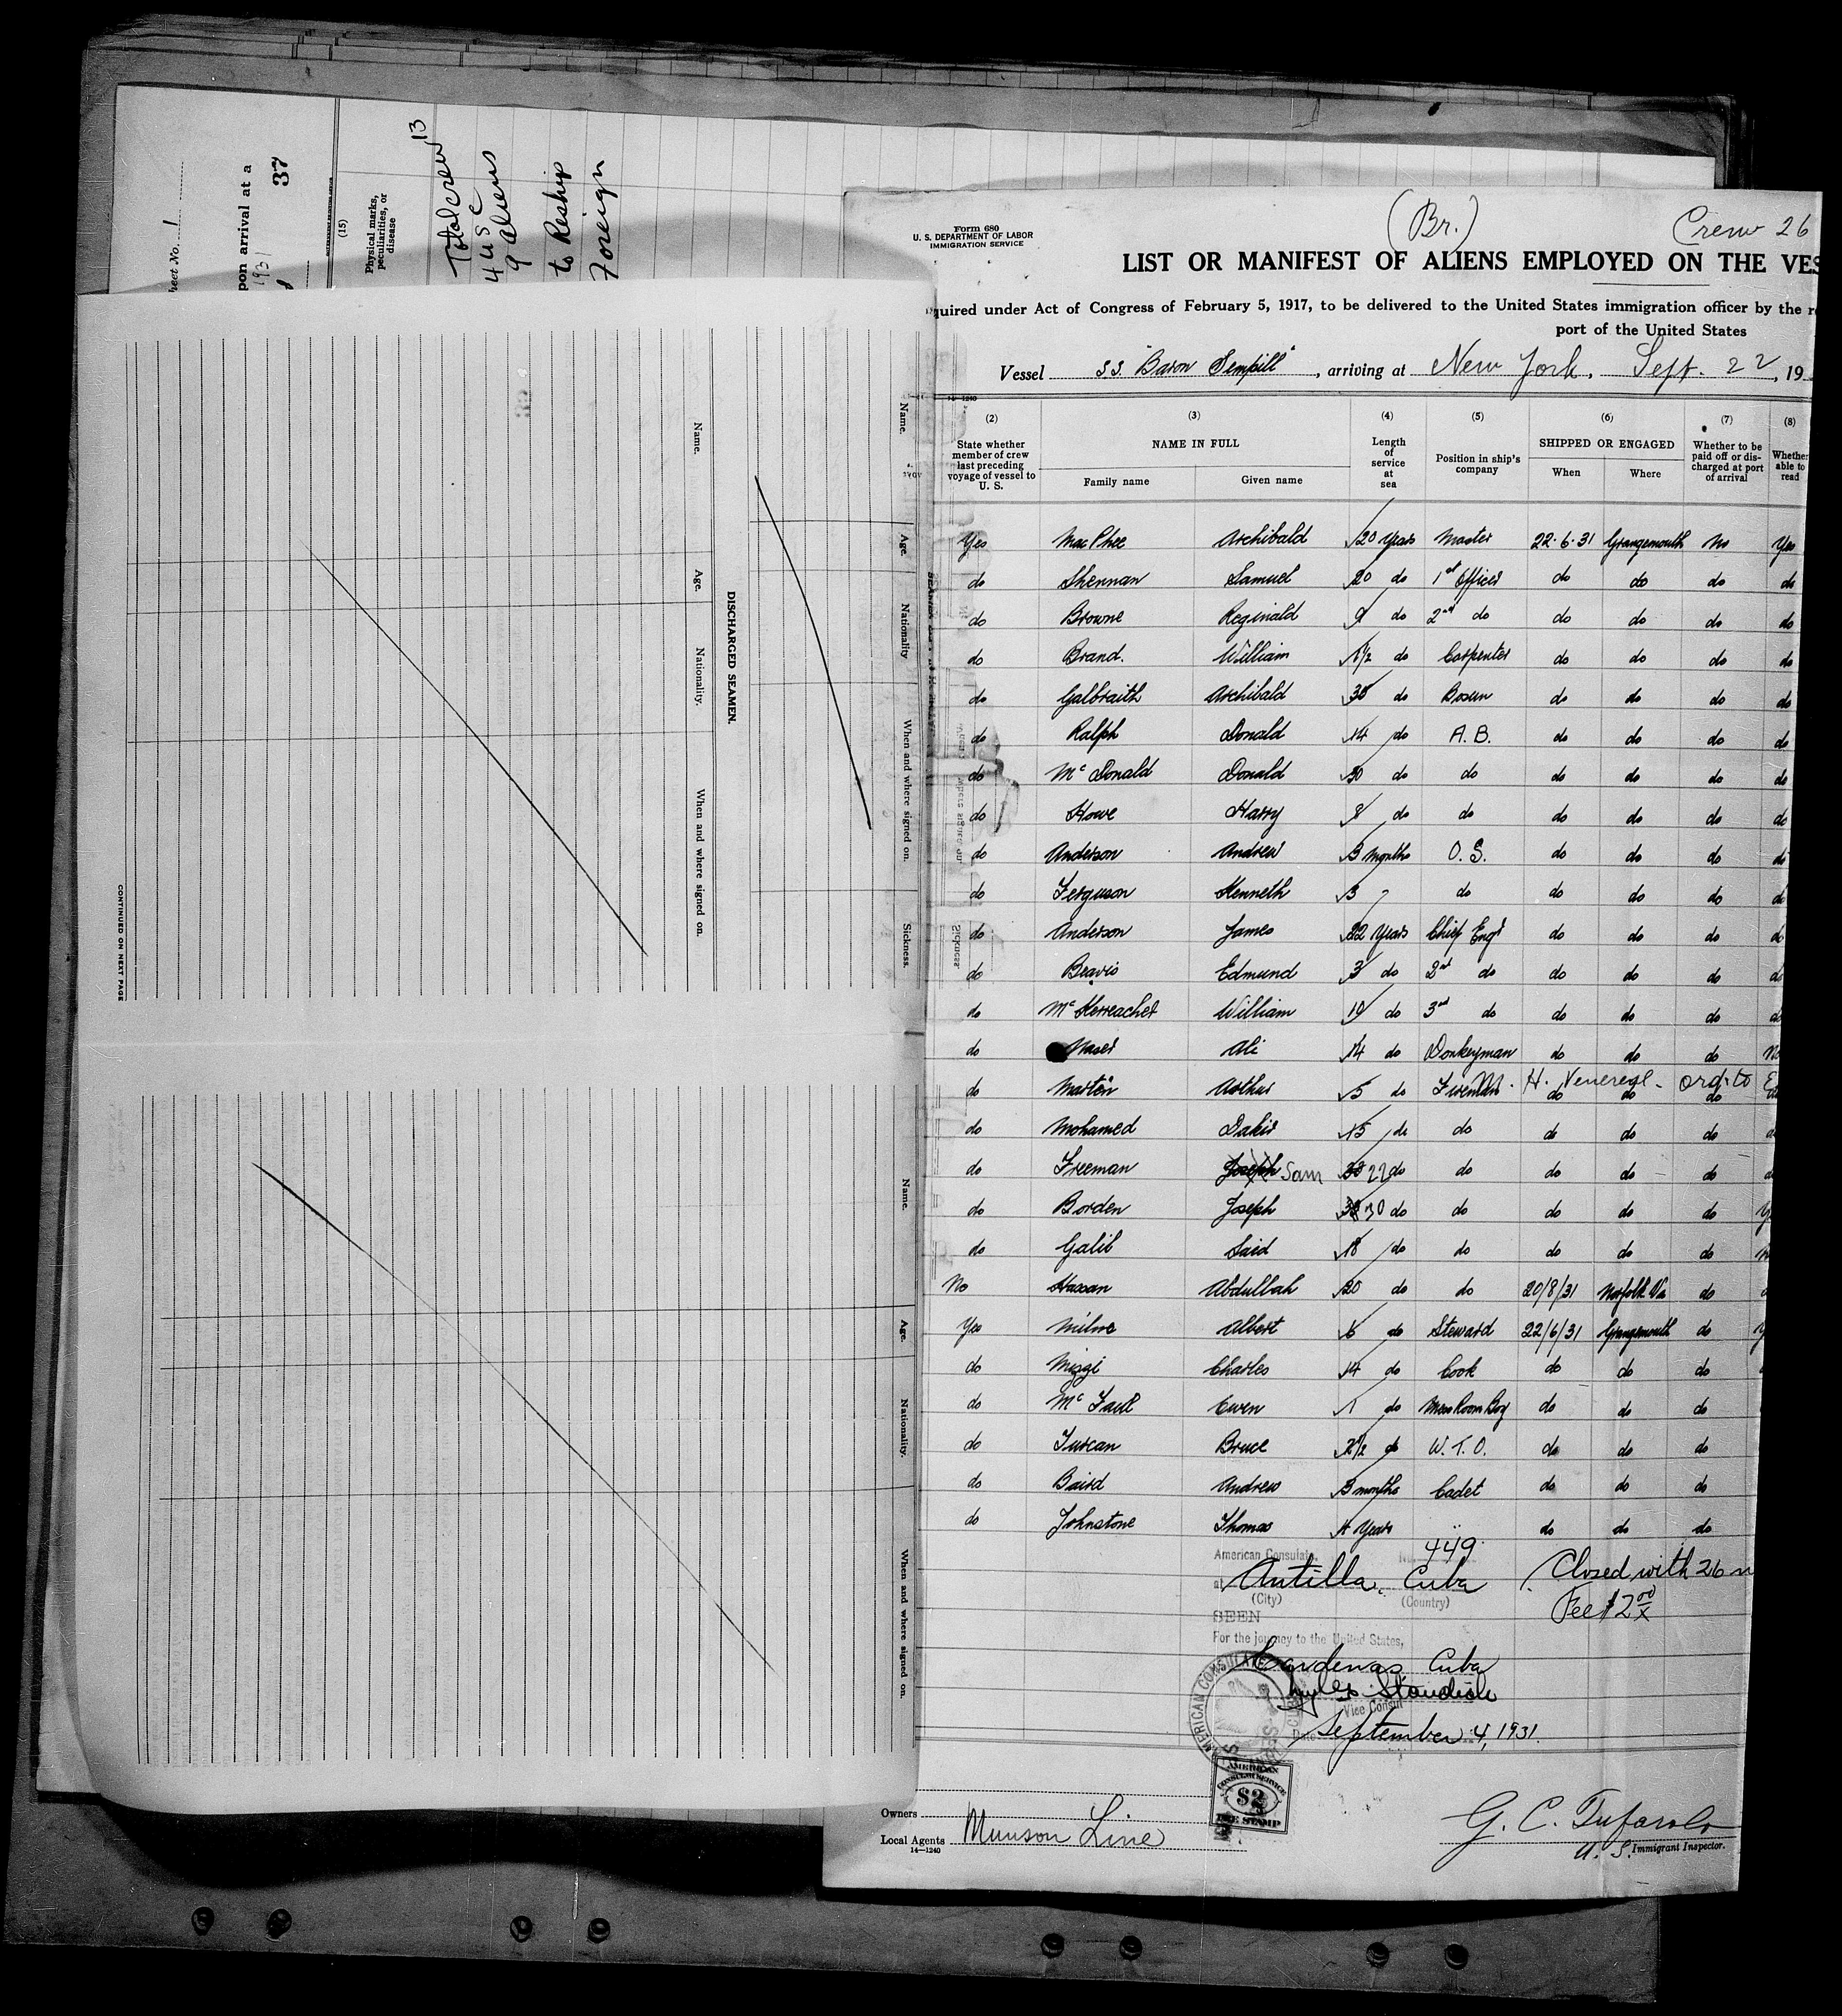 Sheet No. 1
upon arrival at a
1931
37
(15)
Physical marks,
peculiarities, or
disease
Total crew 13
4 USC
9 aliens
to Reship
Foreign
Name.
Age.
Nationality
When and where signed on.
Sickness.
DISCHARGED SEAMEN.
Name.
Age.
Nationality.
When and where signed on.
CONTINUED ON NEXT PAGE
Name.
Age.
Nationality.
When and where signed on.
Form 680
U. S. DEPARTMENT OF LABOR
IMMIGRATION SERVICE
(Br.)
Crew 26
LIST OR MANIFEST OF ALIENS EMPLOYED ON THE VES
quired under Act of Congress of February 5, 1917, to be delivered to the United States immigration officer by the r
port of the United States
Vessel S.S. "Baron Sempill", arriving at New York, Sept. 22, 19
14-1240
(2) (3) (4) (5) (6) (7) (8)
State whether member of crew last preceding voyage of vessel to U. S.
NAME IN FULL
Family name Given name
Length of service at sea
Position in ship's company
SHIPPED OR ENGAGED
When Where
Whether to be paid off or discharged at port of arrival
Whether able to read
Yes Mac Phee Archibald 20 Years Master 22.6.31 Grangemouth No Yes
do Shennan Samuel 20 do 1st Officer do do do do
do Browne Reginald 9 do 2nd do do do do do
do Brand. William 1½ do Carpenter do do do do
do Galbraith Archibald 38 do Bosun do do do do
do Ralph Donald 14 do A.B. do do do do
do Mc Donald Donald 30 do do do do do do
do Howe Harry 8 do do do do do do
do Anderson Andrew 3 months O.S. do do do do
do Ferguson Kenneth 3 " do do do do do
do Anderson James 22 Years Chief Engr do do do do
do Beavis Edmund 3 do 2nd do do do do do
do Mc Kerreacher William 10 do 3rd do do do do do
do Naser Ali 14 do Donkeyman do do do No
do Martin Arthur 5 do Fireman. H. Venereal - ord. to
do do do
do Mohamed Dakir 15 do do do do do
do Freeman Joseph Sam 22 do do do do do
do Borden Joseph 30 do do do do do
do Galib Said 18 do do do do do
No Hassan Abdullah 20 do do 20/8/31 Norfolk Va do
Yes Milne Albert 6 do Steward 22/6/31 Grangemouth do
do Mizzi Charles 14 do Cook do do do
do Mc Faul Ewen 1 do Mess Room Boy do do do
do Turcan Bruce 2½ do W.T.O. do do do
do Baird Andrew 3 months Cadet do do do
do Johnstone Thomas Years " do do do
American Consulate, No. 449
at Antilla, Cuba
(City) (Country)
Closed with 26 n
Fee $2.00
SEEN
For the journey to the United States,
Cardenas, Cuba
Myles Standish
Vice Consul
Date September 4, 1931.
AMERICAN CONSULATE
AMERICAN
CONSULAR SERVICE
$2
FEE STAMP
Owners
Local Agents Munson Line
14-1240
G. C. Tufarolo
U. S. Immigrant Inspector.